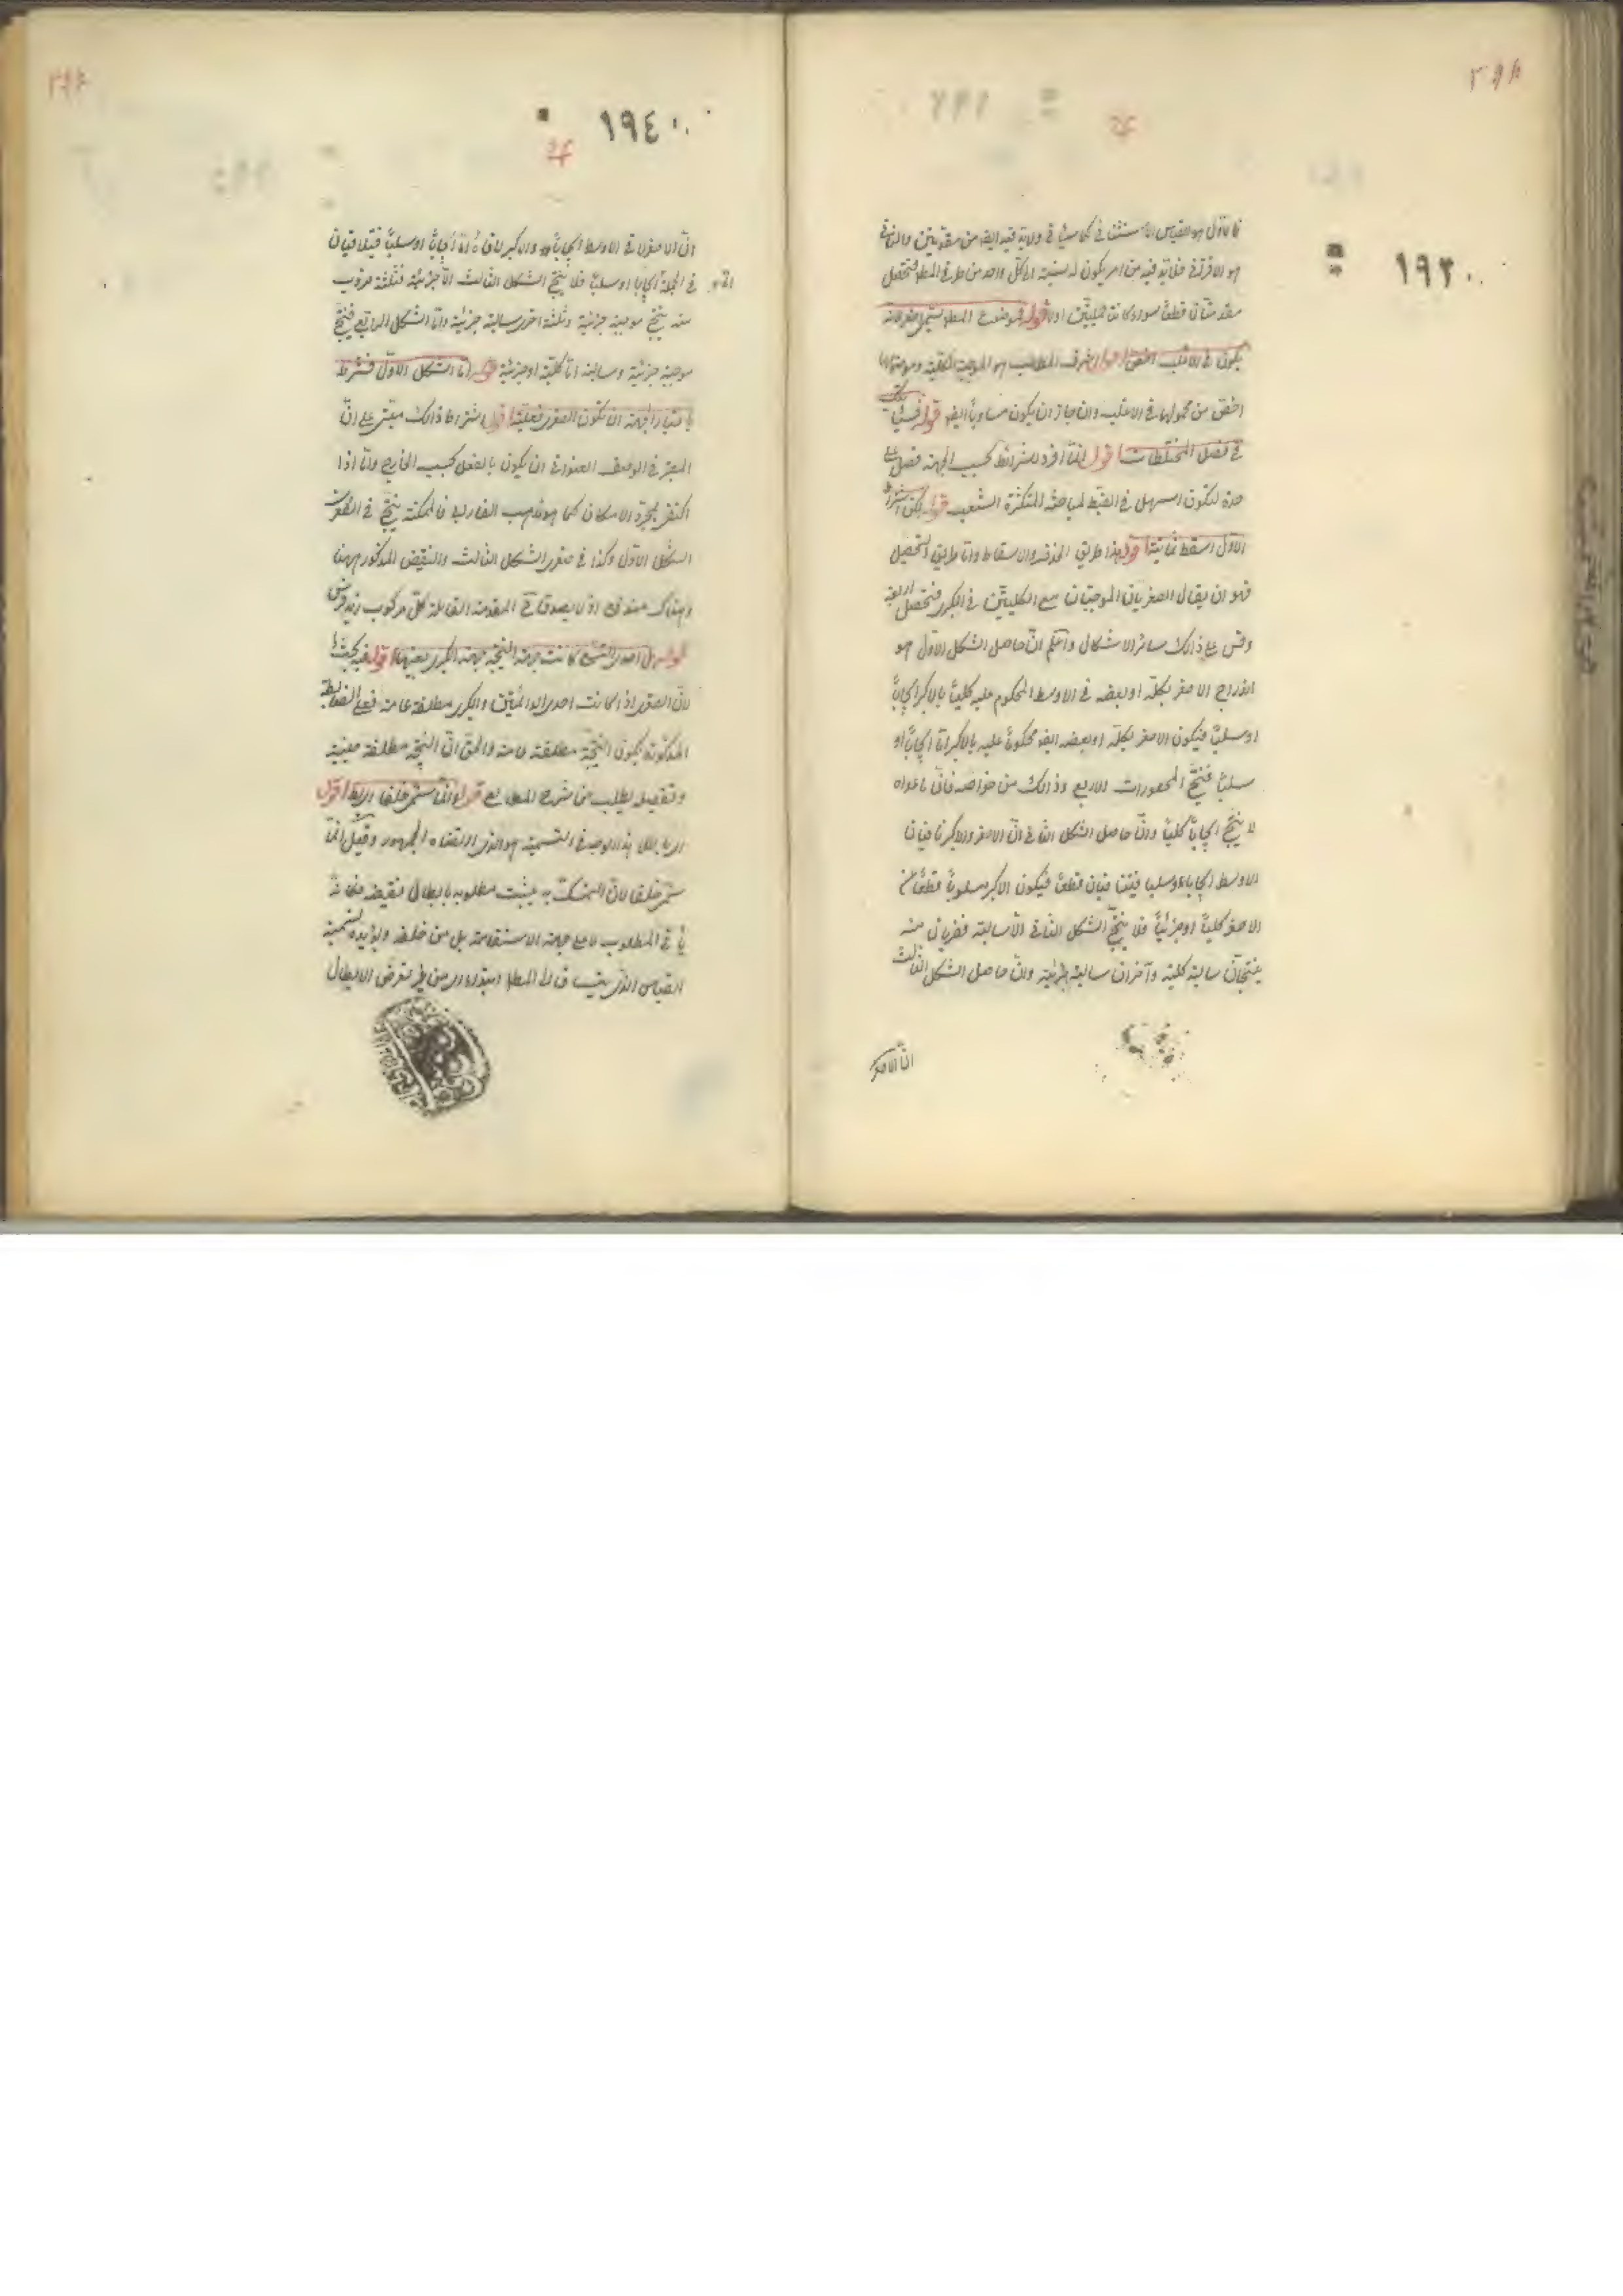 ١٩٣٠
فالاول هو القياس الاستثنائي كما سيأتي ولابد فيه ايضا من مقدمتين والثاني
هو الاقتراني فلابد فيه من امر يكون له نسبة الى كل واحد من طرفي المط فتحصل
مقدمتان قطعا سواء كانتا حمليتين اولا قوله وموضوع المط يسمى اصغر لانه
يكون في الاغلب اخص اقول اشرف المطالب هو الموجبة الكلية وموضوعها
اخص من محمولها في الاغلب وان جاز ان يكون مساويا ايضا قوله فسيأتيك
في فصل المختلطات اقول انما افرد لشرائط بحسب الجهة فصل على
حدة لتكون اسهل في الضبط لمباحثه المتكثرة الشعب قوله لكن اشتراط
الاول اسقط ثمانية اقول هذا طريق الحذف والاسقاط واما طريق التحصيل
فهو ان يقال الصغريان الموجبتان مع الكليتين في الكبرى فتحصل اربعة
وقس على ذلك سائر الاشكال واعلم ان حاصل الشكل الاول هو
اندراج الاصغر بكله او بعضه في الاوسط المحكوم عليه كليا بالاكبر ايجابا
او سلبا فيكون الاصغر بكله او بعضه ايضا محكوما عليه بالاكبر اما ايجابا او
سلبا فينتج المحصورات الاربع وذلك من خواصه فان ما عداه
لا ينتج ايجابا كليا وان حاصل الشكل الثاني ان الاصغر والاكبر تنافيان
الاوسط ايجابا وسلبا فيتنافيان قطعا فيكون الاكبر مسلوبا قطعا عن
الاصغر كليا او جزئيا فلا ينتج الشكل الثاني الا سالبة فضربان منه
ينتجان سالبة كلية وآخران سالبة جزئية وان حاصل الشكل الثالث
ان الاصغر
١٩٤٠
ان الاصغر لاقى الاوسط ايجابا والاكبر لاقاه اما ايجابا او سلبا فيتلاقيان
في الجملة ايجابا او سلبا فلا ينتج الشكل الثالث الا جزئية فثلثة ضروب
منه ينتج موجبة جزئية وثلثة اخرى سالبة جزئية واما الشكل الرابع فينتج
موجبة جزئية وسالبة اما كلية او جزئية قوله اما الشكل الاول فشرط
باعتبار الجهة ان تكون الصغرى فعلية اقول اشتراط ذلك مبتنى على ان
المعتبر في الوصف العنواني ان يكون بالفعل بحسب الخارج واما اذا
اكتفى بمجرد الامكان كما هو مذهب الفارابي فالممكنة ينتج في الصغرى
الشكل الاول وكذا في صغرى الشكل الثالث والنقيض المذكور ههنا
وهناك مندفع اذ لا يصدق المقدمة القائلة كل مركوب زيد فرس
كانت جهة النتيجة جهة الكبرى بعينها اقول فيه بحث
لان الصغرى اذا كانت احدى الدائمتين والكبرى مطلقة عامة فعلى الضابطة
المذكورة يكون النتيجة مطلقة عامة والحق ان النتيجة مطلقة حينية
وتفصيله يطلب من شرح المطالع قوله وانما سمى خلفا اقول
هذا الوجه في التسمية هو الذي ارتضاه الجمهور وقيل انما
سمى خلفا لان المتمسك به يثبت مطلوبه بابطال نقيضه فكانه
يأتي المطلوب لا مع جهة الاستقامة بل من خلفه ويؤيده تسمية
القياس الذي ينساق الى المط ابتداء اي من غير تعرض لابطال